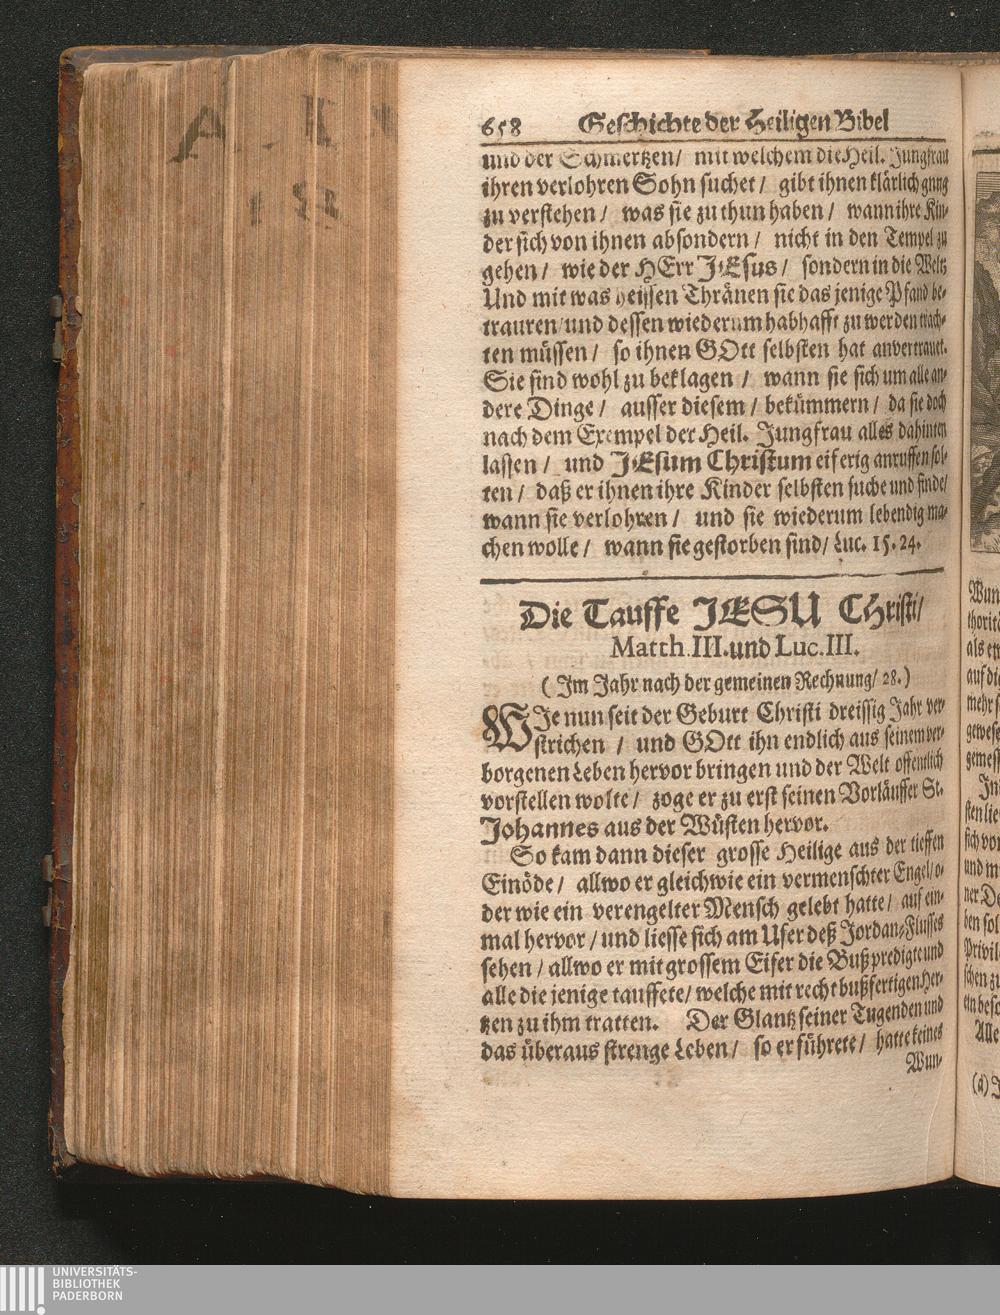 658 Geschichte der Heiligen Bibel
und der Schmertzen/ mit welchem die Heil. Jungfrau
ihren verlohren Sohn suchet/ gibt ihnen klärlich gnug
zu verstehen/ was sie zu thun haben/ wann ihre Kin-
der sich von ihnen absondern/ nicht in den Tempel zu
gehen/ wie der HErr JEsus/ sondern in die Welt;
Und mit was heissen Thränen sie das jenige Pfand be-
trauren/ und dessen wiederum habhafft zu werden trach-
ten müssen/ so ihnen GOtt selbsten hat anvertrauet.
Sie sind wohl zu beklagen/ wann sie sich um alle an-
dere Dinge/ ausser diesem/ bekümmern/ da sie doch
nach dem Exempel der Heil. Jungfrau alles dahinten
lassen/ und JEsum Christum eiferig anruffen sol-
ten/ daß er ihnen ihre Kinder selbsten suche und finde/
wann sie verlohren/ und sie wiederum lebendig ma-
chen wolle/ wann sie gestorben sind/ Luc. 15. 24.
Die Tauffe JESU CHristi/
Matth. III. und Luc. III.
(Im Jahr nach der gemeinen Rechnung/ 28.)
WJe nun seit der Geburt Christi dreissig Jahr ver-
strichen/ und GOtt ihn endlich aus seinem ver-
borgenen Leben hervor bringen und der Welt offentlich
vorstellen wolte/ zoge er zu erst seinen Vorläuffer St.
Johannes aus der Wüsten hervor.
So kam dann dieser grosse Heilige aus der tieffen
Einöde/ allwo er gleichwie ein vermenschter Engel/ o-
der wie ein verengelter Mensch gelebt hatte/ auf ein-
mal hervor/ und liesse sich am Ufer deß Jordan-Flusses
sehen/ allwo er mit grossem Eifer die Buß predigte und
alle die jenige tauffete/ welche mit recht bußfertigen Her-
tzen zu ihm tratten. Der Glantz seiner Tugenden und
das überaus strenge Leben/ so er führete/ hatte keines
Wun-
Wun
thorit
als
auf di
mehr
gewes
gemess
Jn
sten lie
sich vo
und m
ner De
ben sol
Privil
schen zu
ein beso
Alle
(a) J
UNIVERSITÄTS-
BIBLIOTHEK
PADERBORN